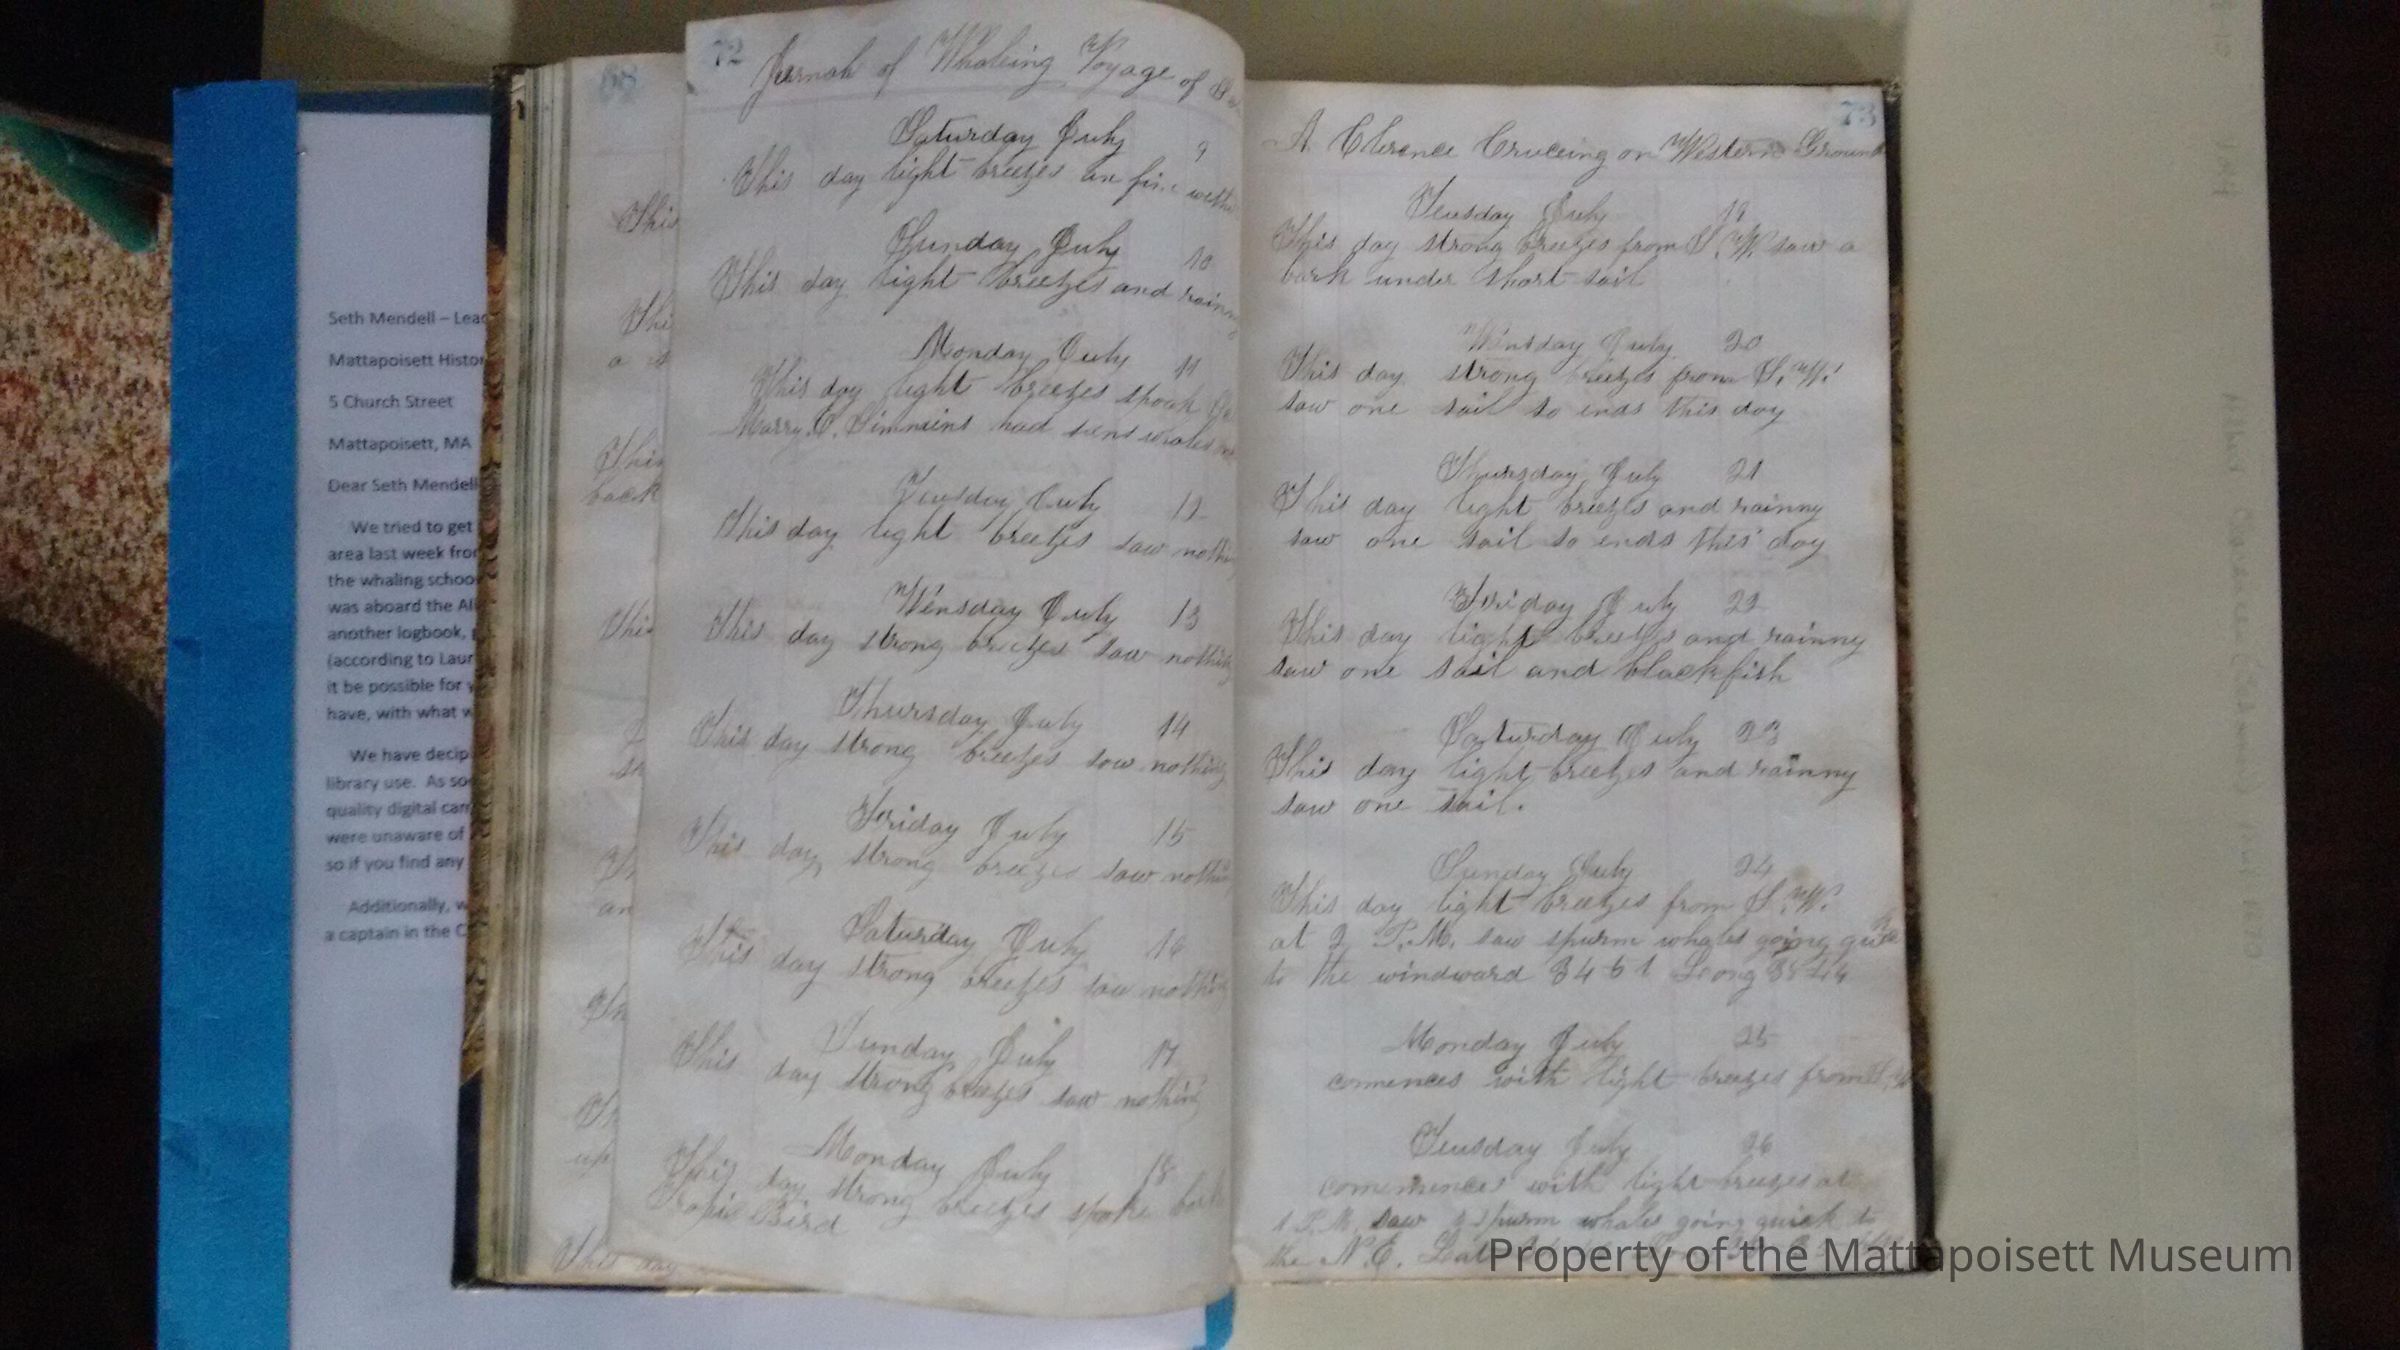 Seth Mendell – Lead
Mattapoisett Histor
5 Church Street
Mattapoisett, MA
Dear Seth Mendell
We tried to get
area last week fro
the whaling schoo
was aboard the Al
another logbook,
(according to Laur
it be possible for
have, with what w
We have decip
library use. As so
quality digital cam
were unaware of
so if you find any
Additionally, w
a captain in the C
68
This
Thi
This
back
This
an
up
This day
72
Journal of Whaleing Voyage of
Saturday July 9
This day light breezes an fine
Sunday July 10
This day light breezes and
Monday July 11
This day light breezes spook
Marry E. Simmins had
Teusday July 12
This day light breezes saw nothing
Wensday July 13
This day strong breezes saw nothing
Thursday July 14
This day strong breezes saw nothing
Friday July 15
This day strong breezes saw nothing
Saturday July 16
This day strong breezes saw nothing
Sunday July 17
This day strong breezes saw nothing
Monday July 18
This day strong breezes spoke
Bird
73
A Clerence Cruceing on Western Ground
Teusday July 19
This day strong breezes from S.W. saw a
bark under short sail
Winsday July 20
This day strong breezes from S.W.
saw one sail so ends this day
Thursday July 21
This day light breezes and rainny
saw one sail so ends this day
Friday July 22
This day light breezes and rainny
saw one sail and blackfish
Saturday July 23
This day light breezes and rainny
saw one sail.
Sunday July 24
This day light breezes from S.W.
at 2 P.M. saw spurm whales going
to the windward Long
Monday July 25
comences with light breezes from
Teusday July 26
commences with light breezes at
1 P.M. saw spurm whales going quick to
the N.E.
Property of the Mattapoisett Museum